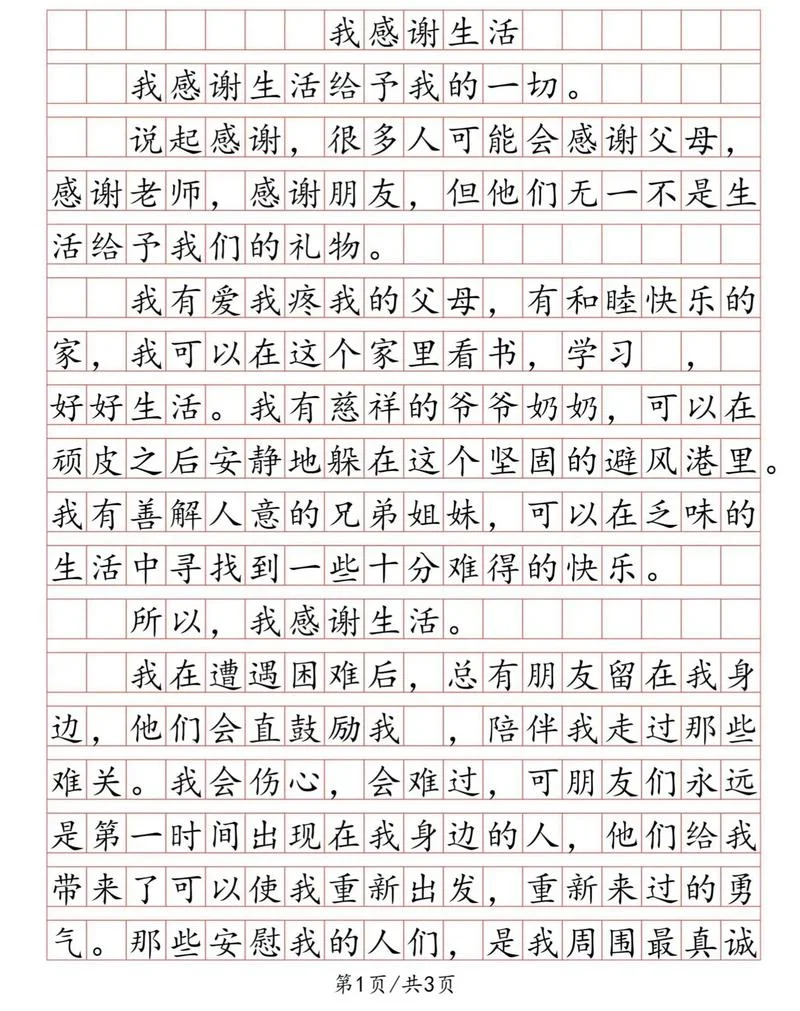 我感谢生活
我感谢生活给予我的一切。
说起感谢，很多人可能会感谢父母，
感谢老师，感谢朋友，但他们无一不是生
活给予我们的礼物。
我有爱我疼我的父母，有和睦快乐的
家，我可以在这个家里看书，学习 ，
好好生活。我有慈祥的爷爷奶奶，可以在
顽皮之后安静地躲在这个坚固的避风港里。
我有善解人意的兄弟姐妹，可以在乏味的
生活中寻找到一些十分难得的快乐。
所以，我感谢生活。
我在遭遇困难后，总有朋友留在我身
边，他们会直鼓励我 ，陪伴我走过那些
难关。我会伤心，会难过，可朋友们永远
是第一时间出现在我身边的人，他们给我
带来了可以使我重新出发，重新来过的勇
气。那些安慰我的人们，是我周围最真诚
第1页/共3页